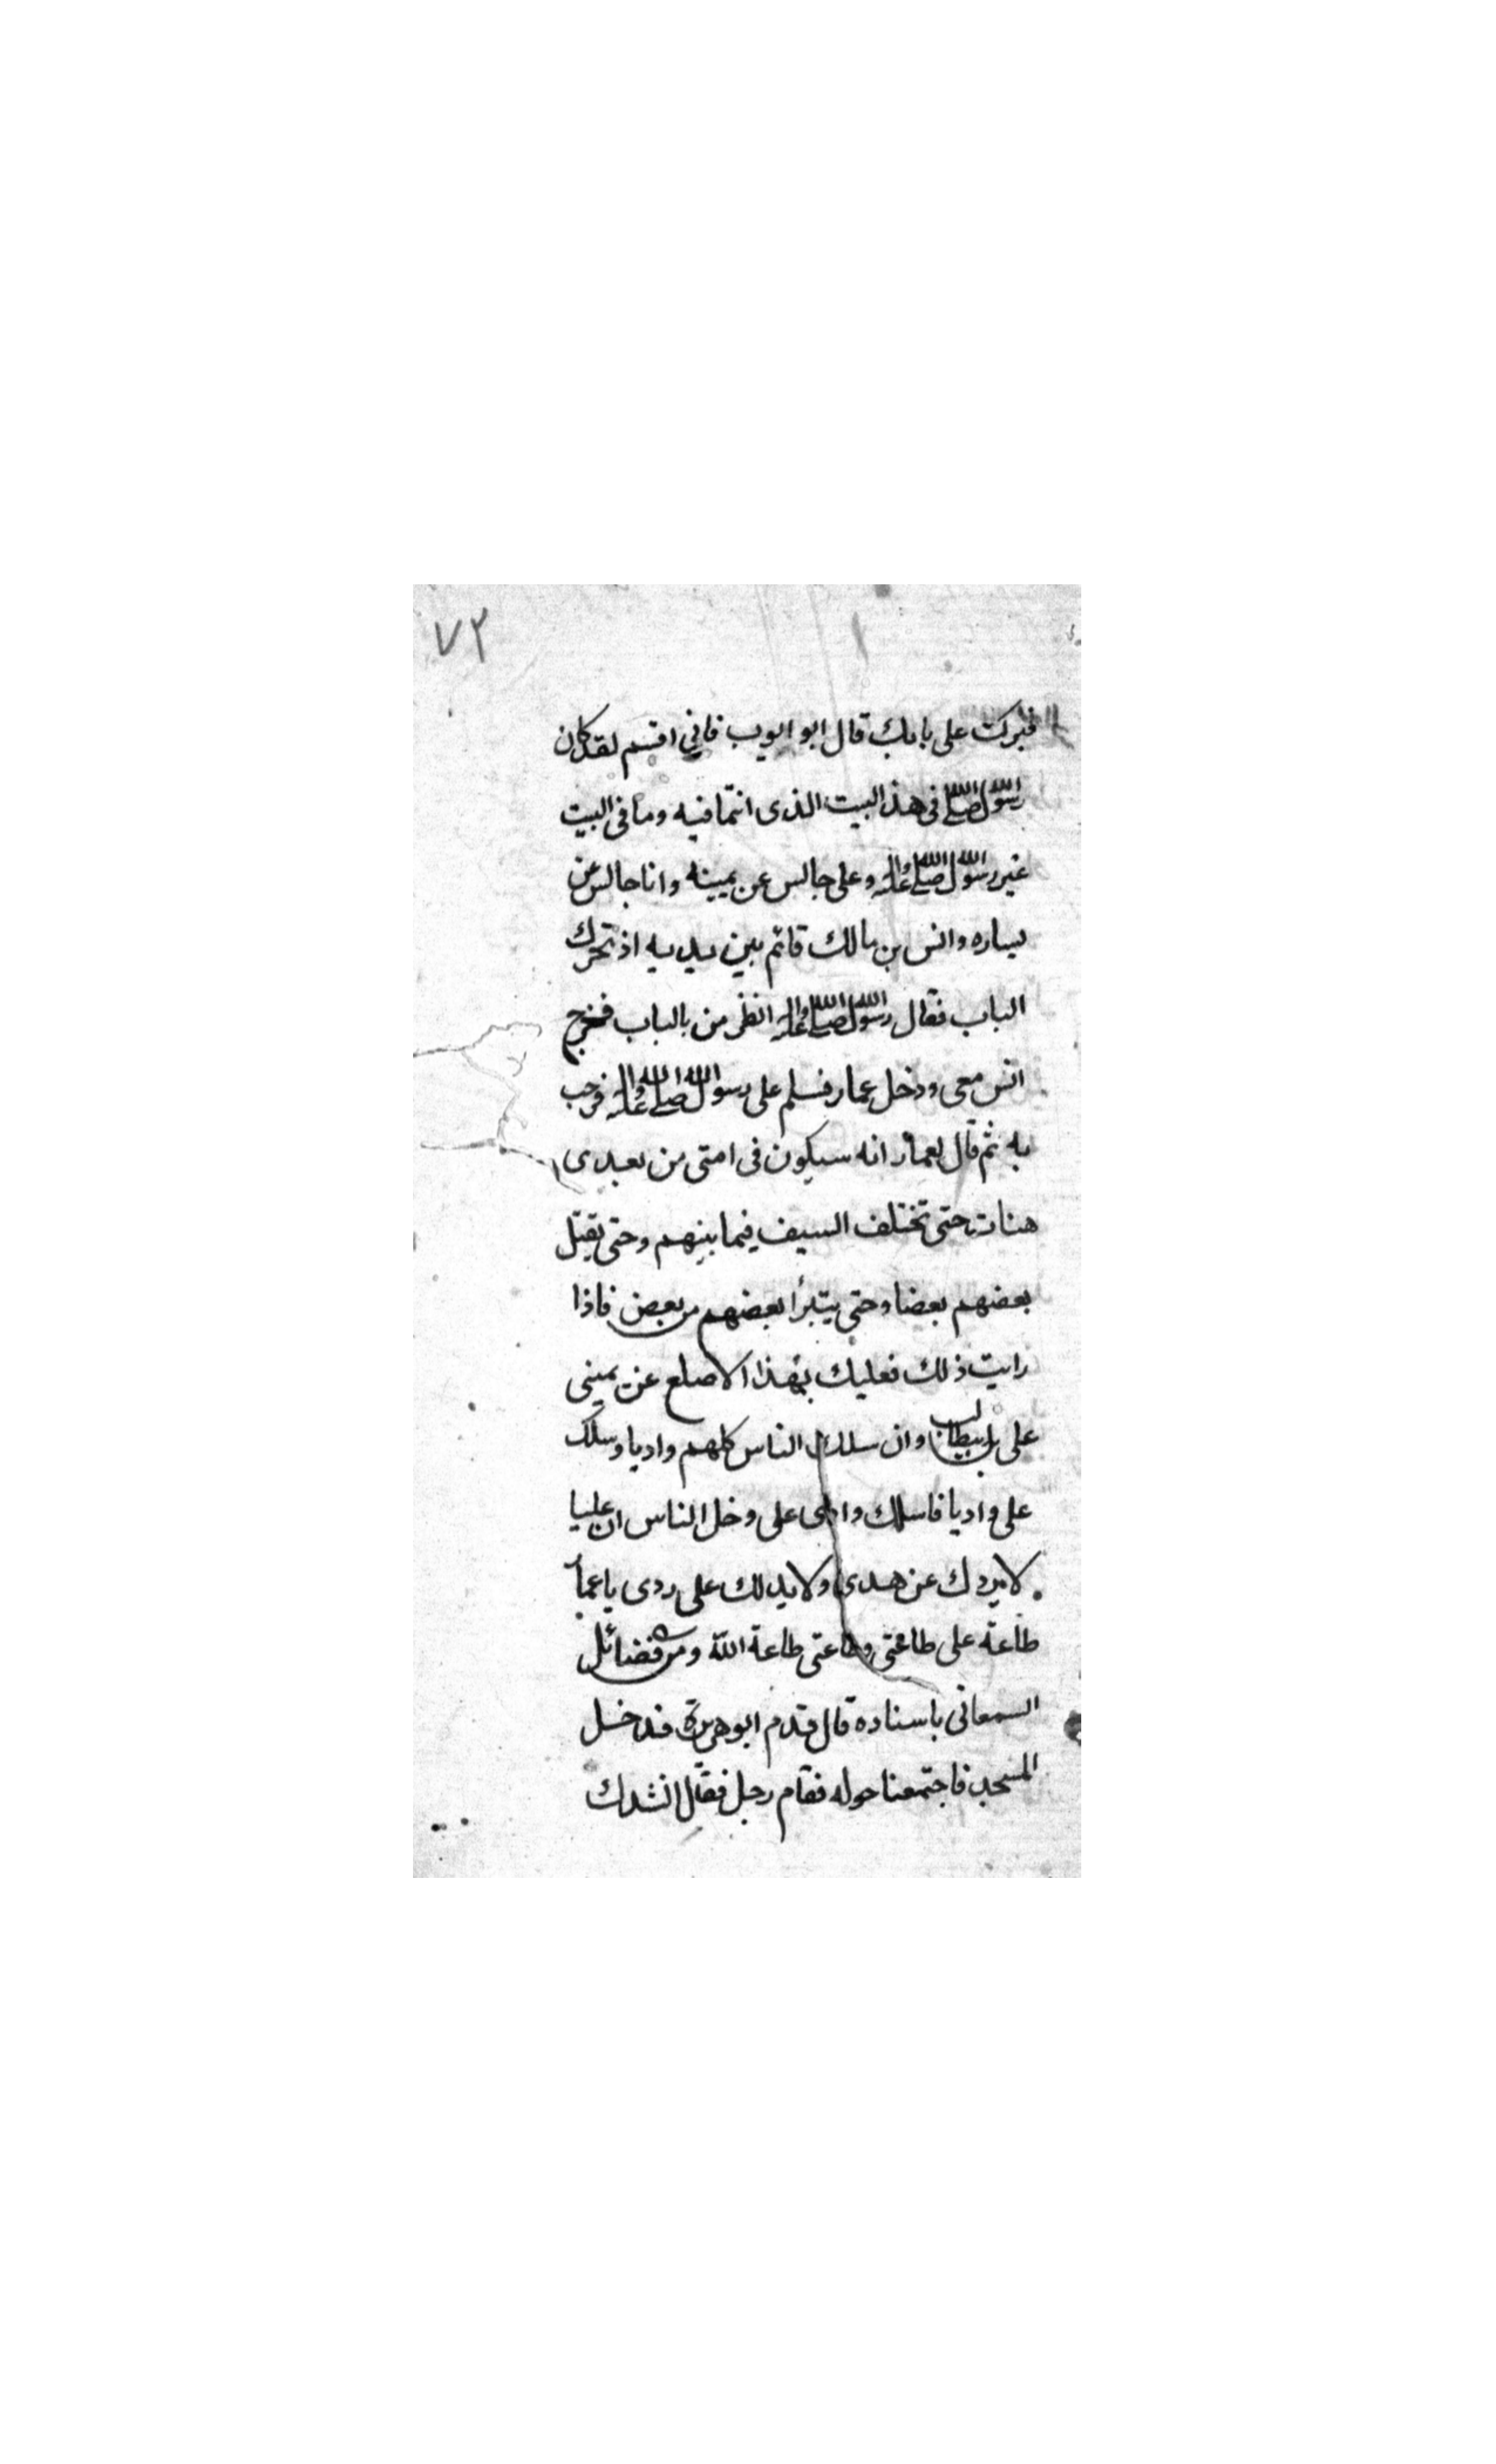 ٧٢
فبركت على بابك قال ابو ايوب فاني اقسم لقد كان
رسول الله صلى الله في هذا البيت الذى انتما فيه وما فى البيت
غير رسول الله صلى الله عليه واله وعلى جالس عن يمينه وانا جالس عن
يساره وانس بن مالك قائم بين يديه اذ تحرك
الباب فقال رسول الله صلى الله عليه واله انظر من بالباب فخرج
انس معى ودخل عمار فسلم على رسول الله صلى الله عليه واله فرحب
به ثم قال لعمار انه سيكون فى امتى من بعدى
هنات حتى تختلف السيف فيما بينهم وحتى يقتل
بعضهم بعضا وحتى يتبرأ بعضهم من بعض فاذا
رايت ذلك فعليك بهذا الاصلع عن يمينى
على بن ابيطالب وان سلك الناس كلهم واديا وسلك
على واديا فاسلك وادى على وخل الناس ان عليا
لا يردك عن هدى ولا يدلك على ردى يا عمار
طاعة على طاعتى وطاعتى طاعة الله ومن فضائل
السمعانى باسناده قال قدم ابو هريرة فدخل
المسجد فاجتمعنا حوله فقام رجل فقال انشدك